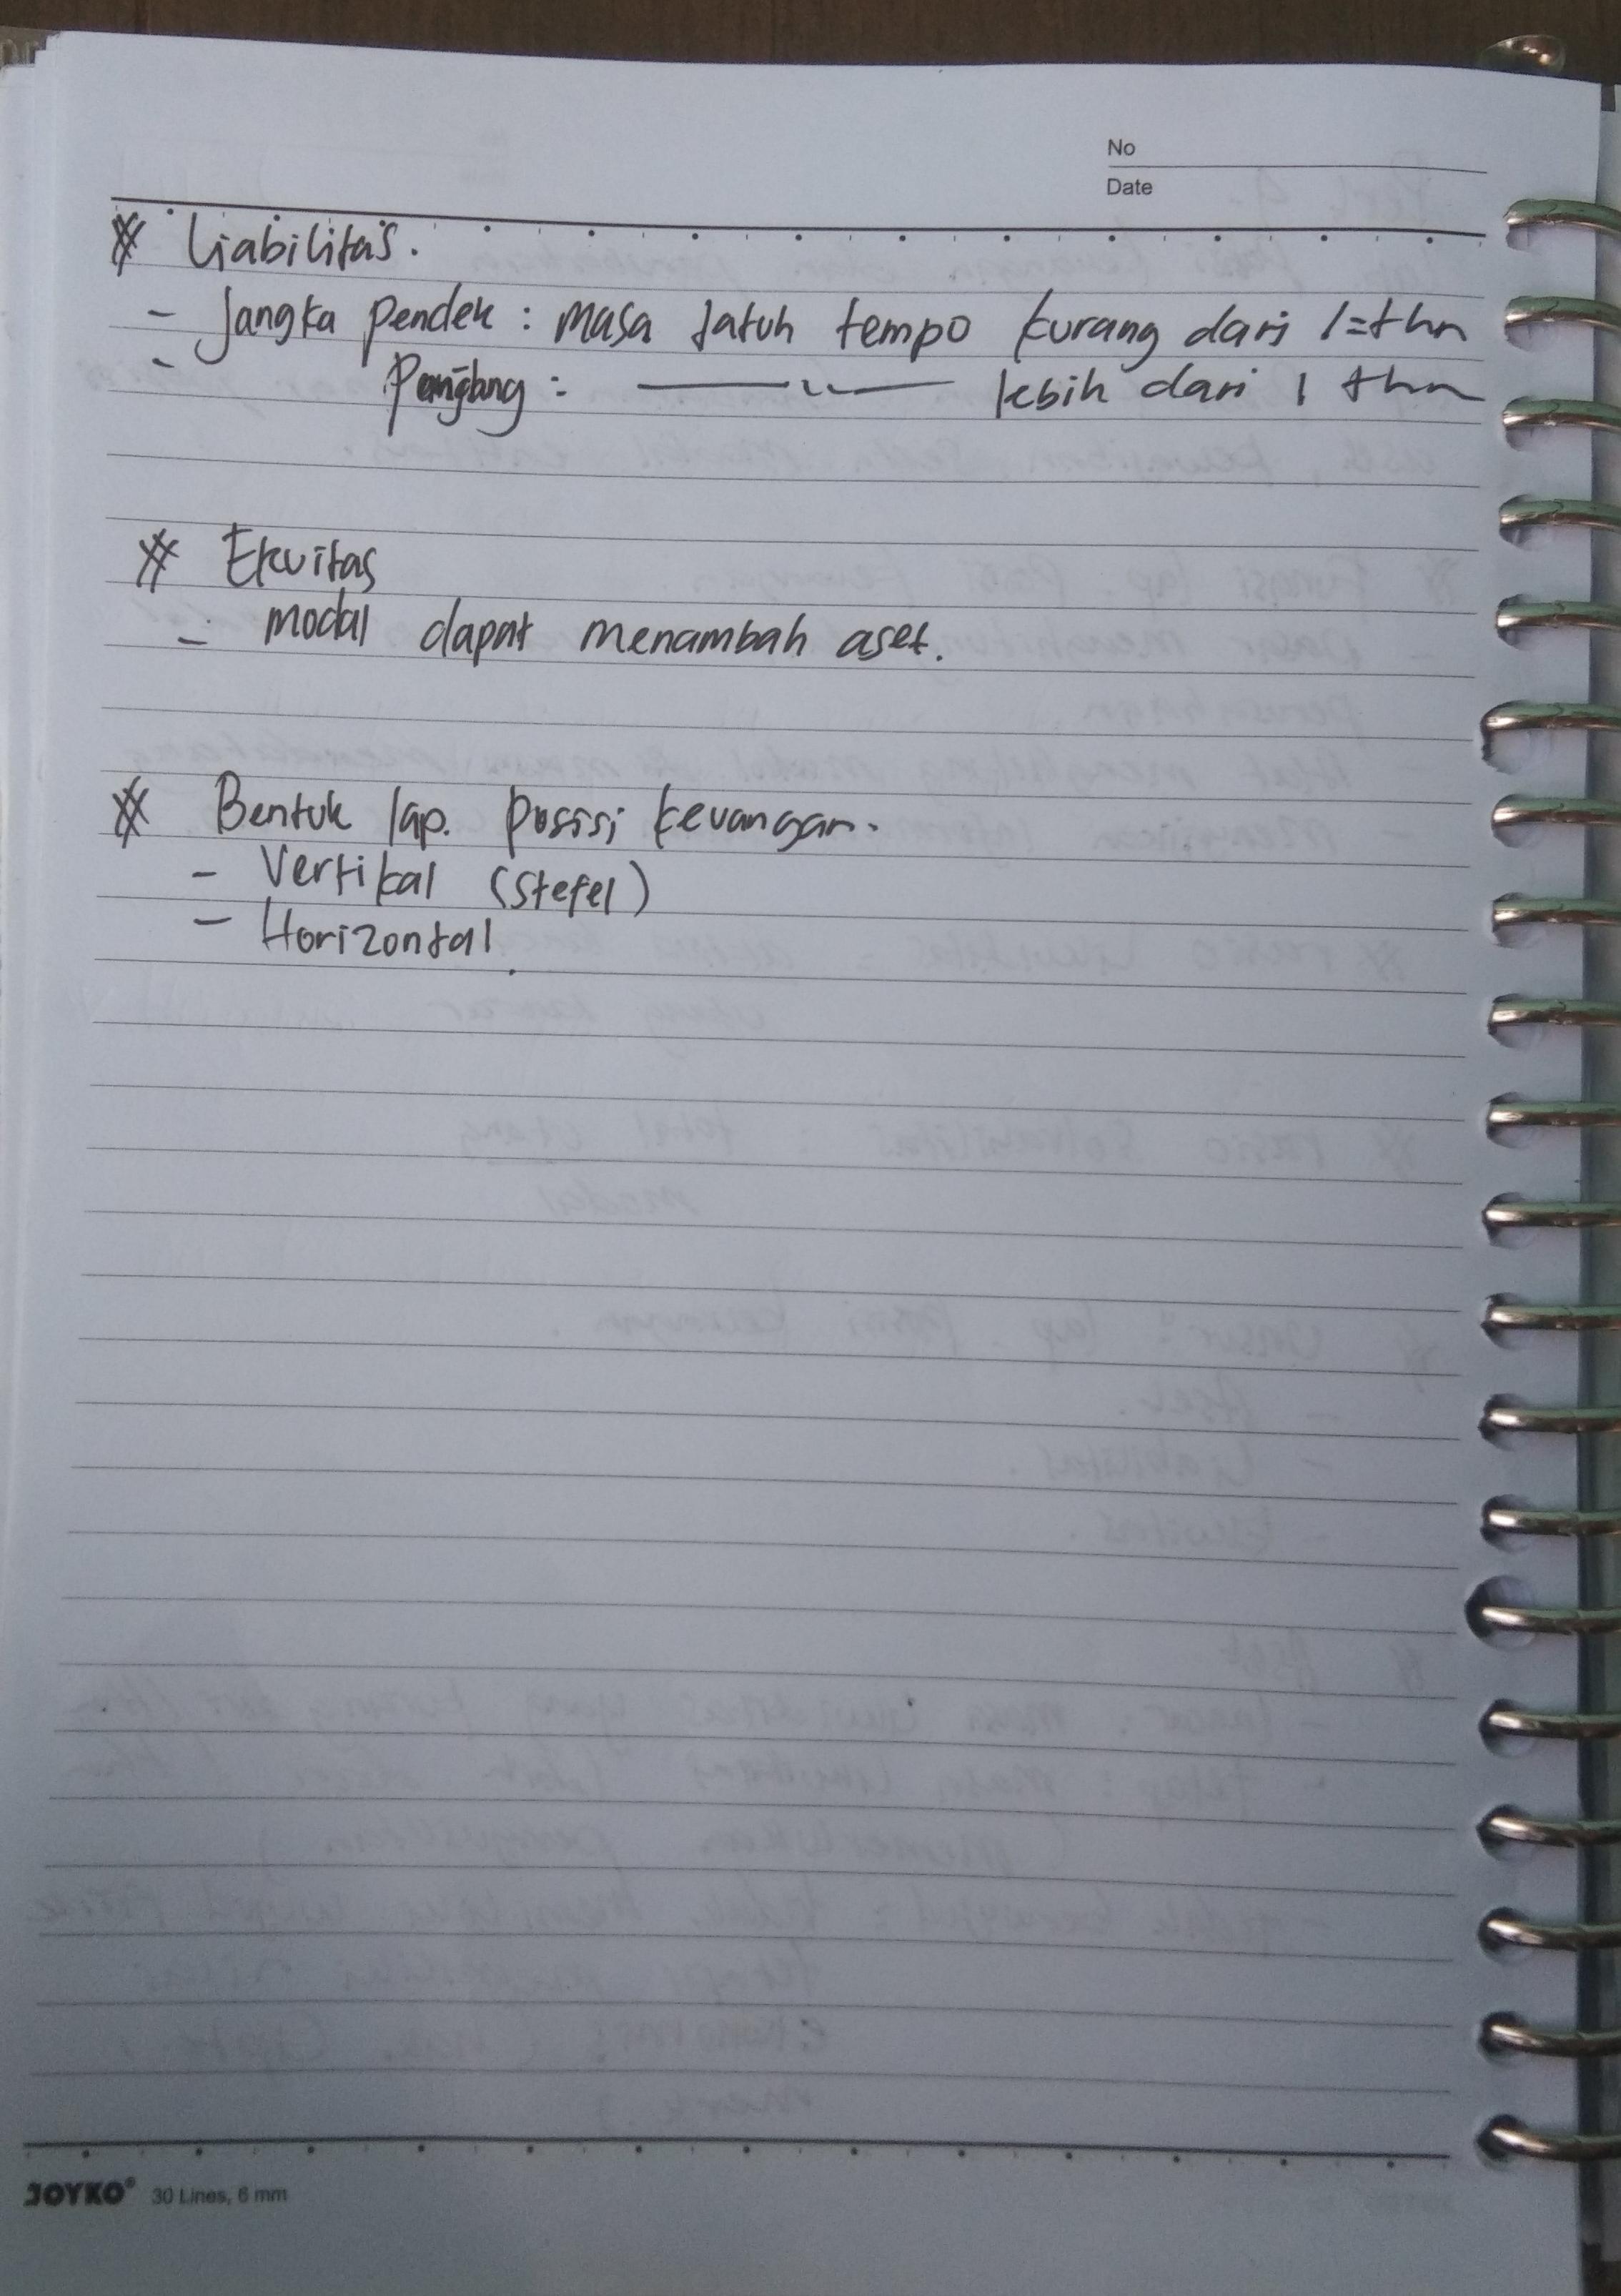 No
Date
# Liabilitas.
- Jangka pendek : masa Jatuh tempo kurang dari 1 thn
- Panjang : ———〃——— lebih dari 1 thn
# Ekuitas
- modal dapat menambah aset.
# Bentuk lap. posisi keuangan.
- Vertikal (Stafel)
- Horizontal.
JOYKO® 30 Lines, 6 mm